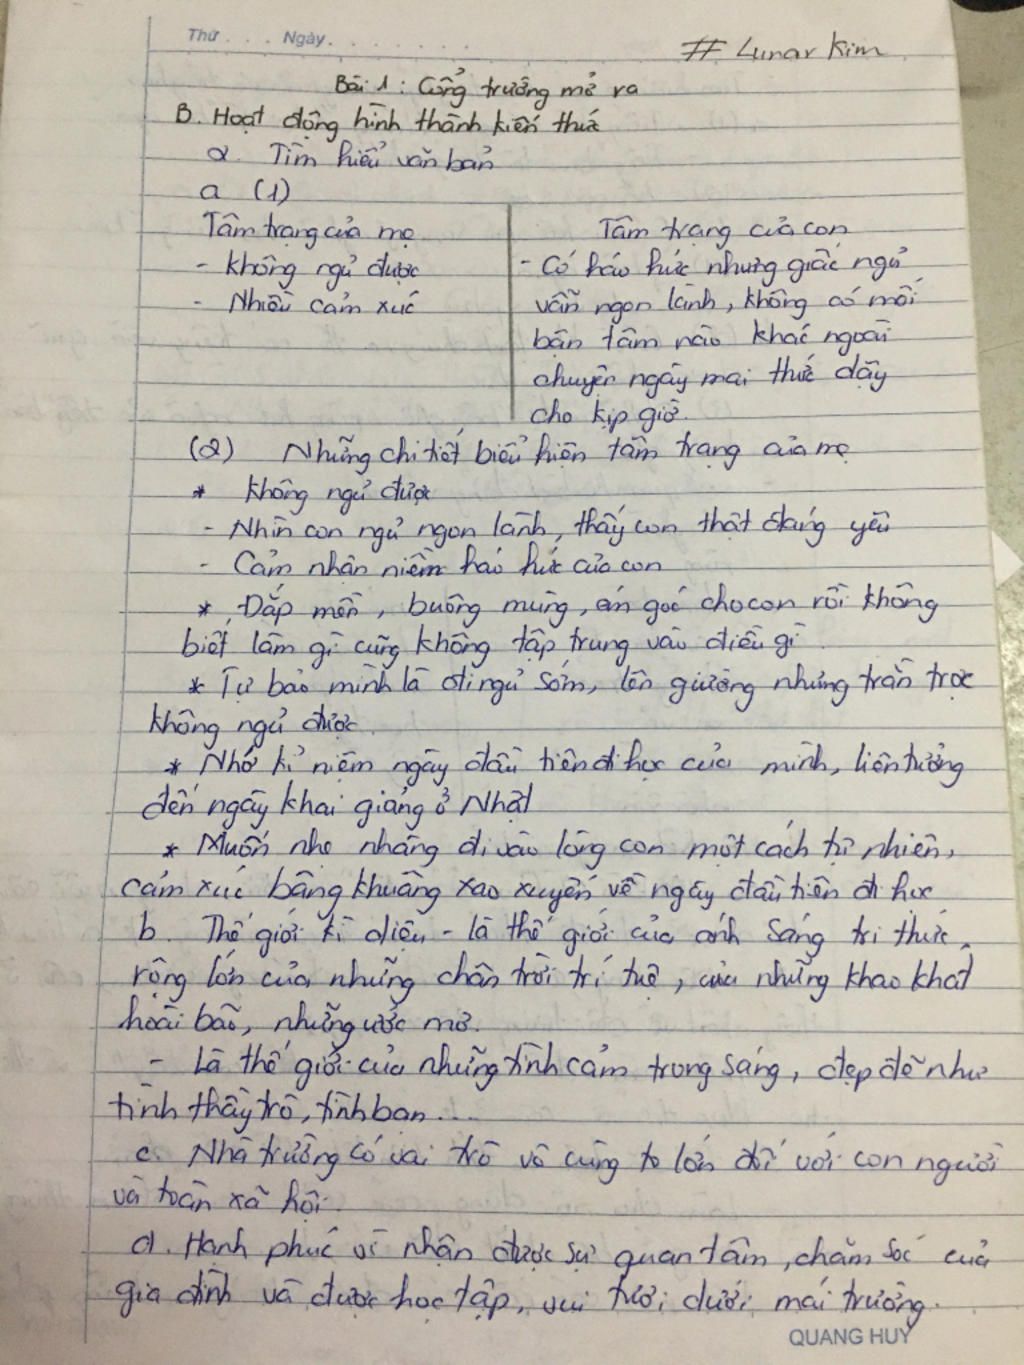 Thứ . . . Ngày . . . . . . .
# Lunar Kim
Bài 1 : Cổng trường mở ra
B. Hoạt động hình thành kiến thức
2. Tìm hiểu văn bản
a (1)
Tâm trạng của mẹ
- Không ngủ được
- Nhiều cảm xúc
Tâm trạng của con
- Có háo hức nhưng giấc ngủ
vẫn ngon lành, không có mối
bận tâm nào khác ngoài
chuyện ngày mai thức dậy
cho kịp giờ.
(2) Những chi tiết biểu hiện tâm trạng của mẹ
* Không ngủ được
- Nhìn con ngủ ngon lành, thấy con thật đáng yêu
- Cảm nhận niềm háo hức của con
* Đắp mền, buông mùng, ém góc cho con rồi không
biết làm gì cũng không tập trung vào điều gì
* Tự bảo mình là đi ngủ sớm, lên giường nhưng trằn trọc
không ngủ được.
* Nhớ kỉ niệm ngày đầu tiên đi học của mình, liên tưởng
đến ngày khai giảng ở Nhật
* Muốn nhẹ nhàng đi vào lòng con một cách tự nhiên,
cảm xúc bâng khuâng xao xuyến về ngày đầu tiên đi học
b. Thế giới kì diệu - là thế giới của ánh sáng tri thức,
rộng lớn của những chân trời trí tuệ, của những khao khát
hoài bão, những ước mơ.
- Là thế giới của những tình cảm trong sáng, đẹp đẽ như
tình thầy trò, tình bạn...
c. Nhà trường có vai trò vô cùng to lớn đối với con người
và toàn xã hội.
d. Hạnh phúc vì nhận được sự quan tâm, chăm sóc của
gia đình và được học tập, vui tươi dưới mái trường.
QUANG HUY